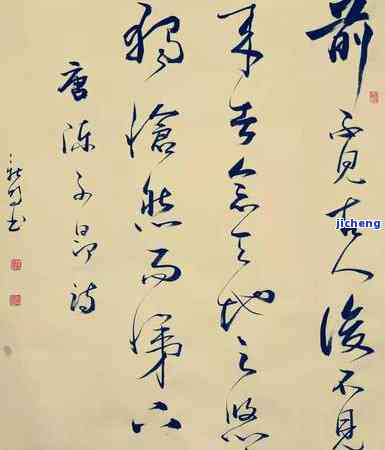 前不见古人后不见
来者念天地之悠
独怆然而涕下
唐陈子昂诗
书
jicheng